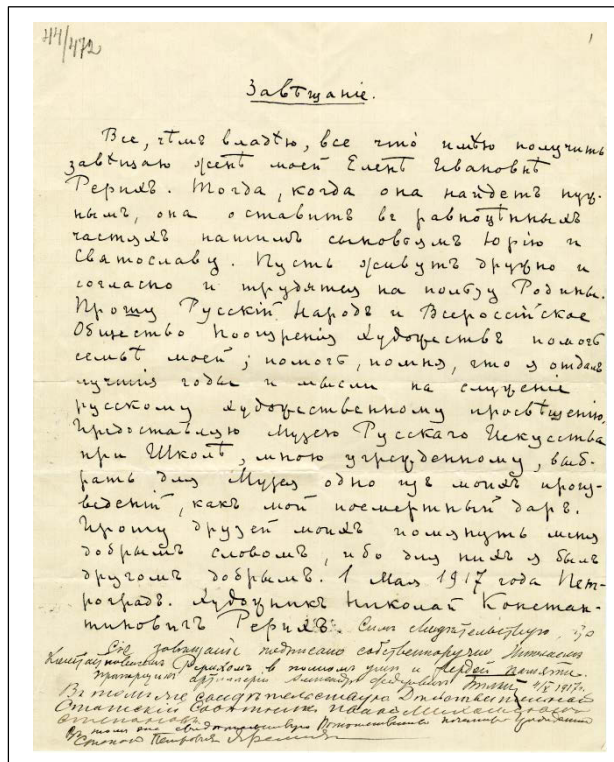 44/472
1
Завѣщаніе.
Все, чѣмъ владѣю, все что имѣю получить
завѣщаю женѣ моей Еленѣ Ивановнѣ
Рерихъ. Тогда, когда она найдетъ нуж-
нымъ, она оставитъ въ равноцѣнныхъ
частяхъ нашимъ сыновьямъ Юрію и
Святославу. Пусть живутъ дружно и
согласно и трудятся на пользу Родины.
Прошу Русскій Народъ и Всероссійское
Общество Поощренія Художествъ помочь
семьѣ моей; помочь, помня, что я отдалъ
лучшія годы и мысли на служеніе
русскому художественному просвѣщенію.
Предоставляю Музею Русскаго Искусства
при Школѣ, мною учрежденному, выб-
рать для Музея одно изъ моихъ произ-
веденій, какъ мой посмертный даръ.
Прошу друзей моихъ помянуть меня
добрымъ словомъ, ибо для нихъ я былъ
другомъ добрымъ. 1 Мая 1917 года Пет-
роградъ. Художникъ Николай Констан-
тиновичъ Рерихъ. Симъ свидѣтельствую, что
Сіе завѣщаніе подписано собственноручно Николаемъ
Константиновичемъ Рерихомъ въ полномъ умѣ и твердой памяти.
Прапорщикъ артиллеріи 1917 г.
Въ томъ же свидѣтельствую Дѣйствительный
Статскій Совѣтникъ Иванъ Михайловичъ
Степановъ
въ томъ же свидѣтельствую Потомственный почетный гражданинъ
Степанъ Петровичъ Яремичъ